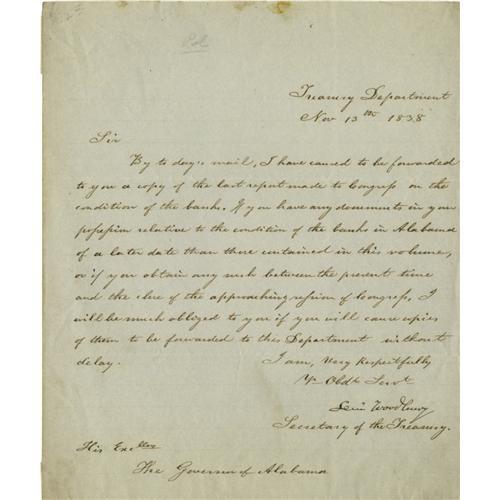 Treasury Department
Nov 13th 1838
Sir
By to day's mail, I have caused to be forwarded
to you a copy of the last report made to Congress on the
condition of the banks. If you have any documents in your
possession relative to the condition of the banks in Alabama
of a later date than those contained in this volume,
or if you obtain any such between the present time
and the close of the approaching session of Congress, I
will be much obliged to you if you will cause copies
of them to be forwarded to this Department without
delay.
I am, Very Respectfully
Yr Obdt Servt
Levi Woodbury
Secretary of the Treasury.
His Excellcy
The Governor of Alabama